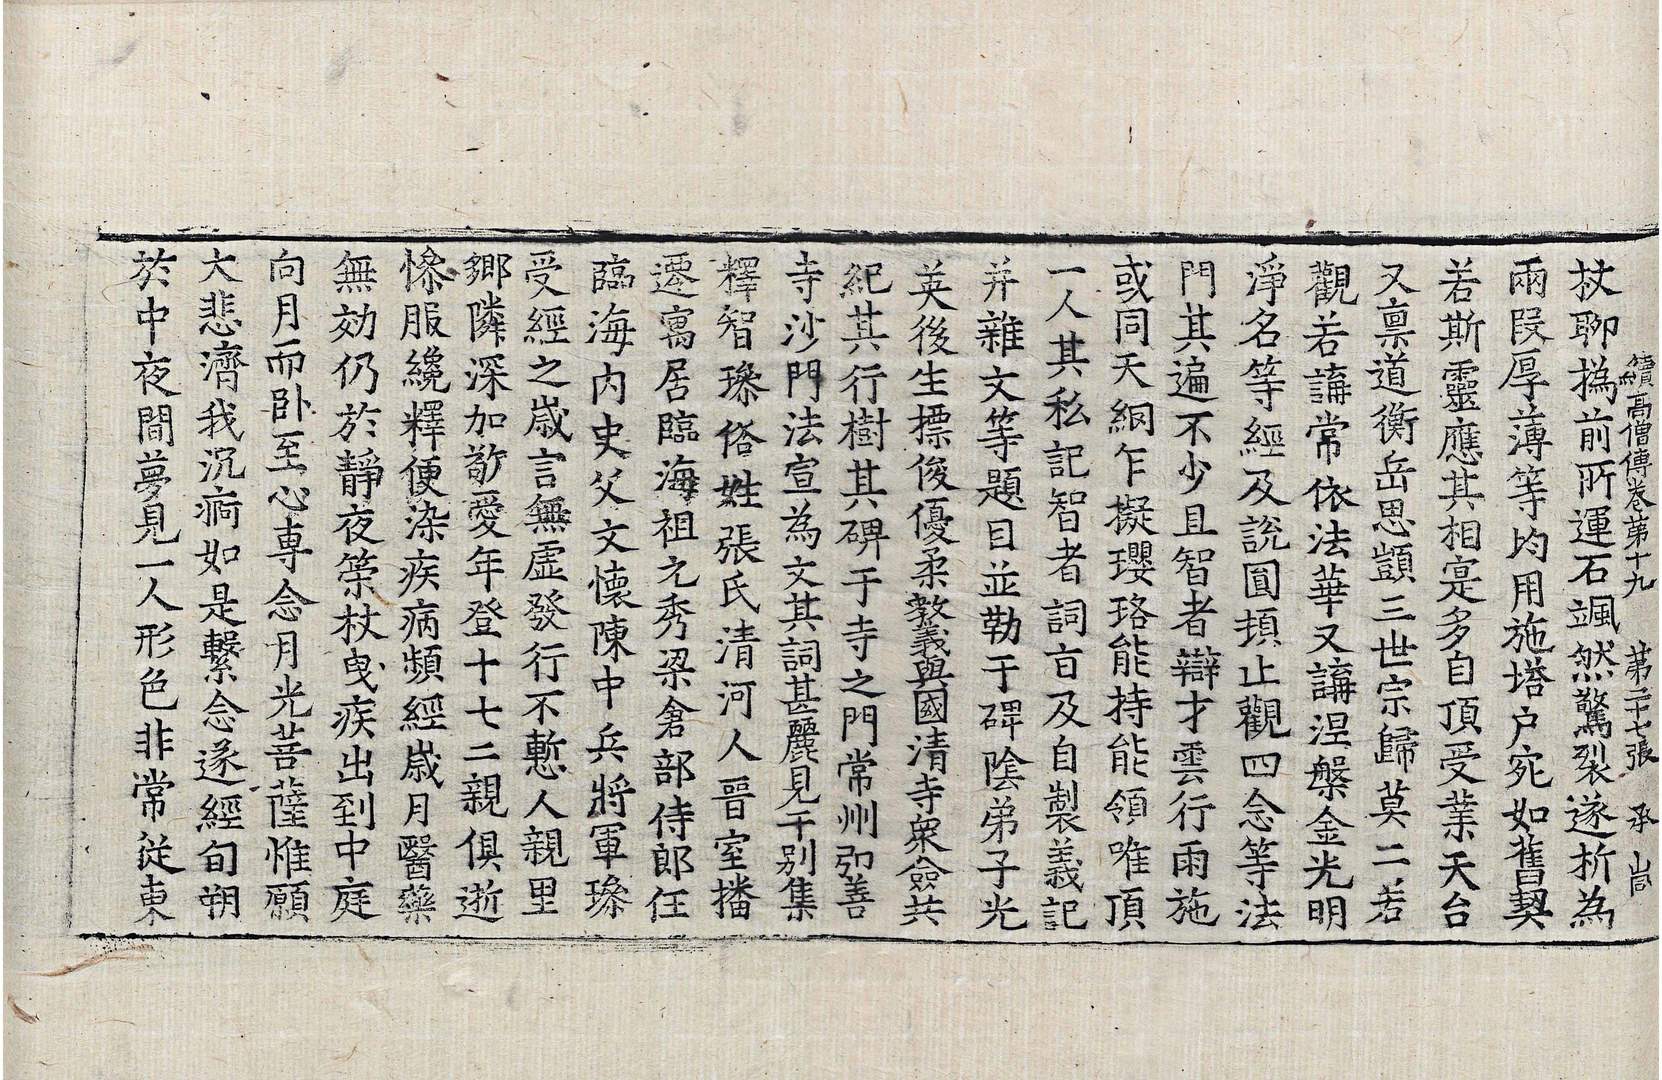 續高僧傳卷第十九　第二十七張　承　岩
杖聊撝前所運石颯然驚裂遂折為
兩段厚薄等均用施塔户宛如舊契
若斯靈應其相寔多自頂受業天台
又禀道衡岳思顗三世宗歸莫二若
觀若講常依法華又講涅槃金光明
淨名等經及說圓頓止觀四念等法
門其遍不少且智者辯才雲行雨施
或同天網乍擬瓔珞能持能領唯頂
一人其私記智者詞㫖及自製義記
并雜文等題目並勒于碑陰弟子光
英後生摽俊優柔教義與國清寺衆僉共
紀其行樹其碑于寺之門常州弘善
寺沙門法宣為文其詞甚麗見于别集
釋智璪俗姓張氏清河人晉室播
遷寓居臨海祖元秀梁倉部侍郎任
臨海内史父文懷陳中兵將軍璪
受經之歲言無虛發行不慙人親里
鄉隣深加敬愛年登十七二親俱逝
慘服纔釋便染疾病頻經歲月醫藥
無効仍於靜夜策杖曳疾出到中庭
向月而卧至心専念月光菩薩惟願
大悲濟我沉痾如是繫念遂經旬朔
於中夜間夢見一人形色非常從東